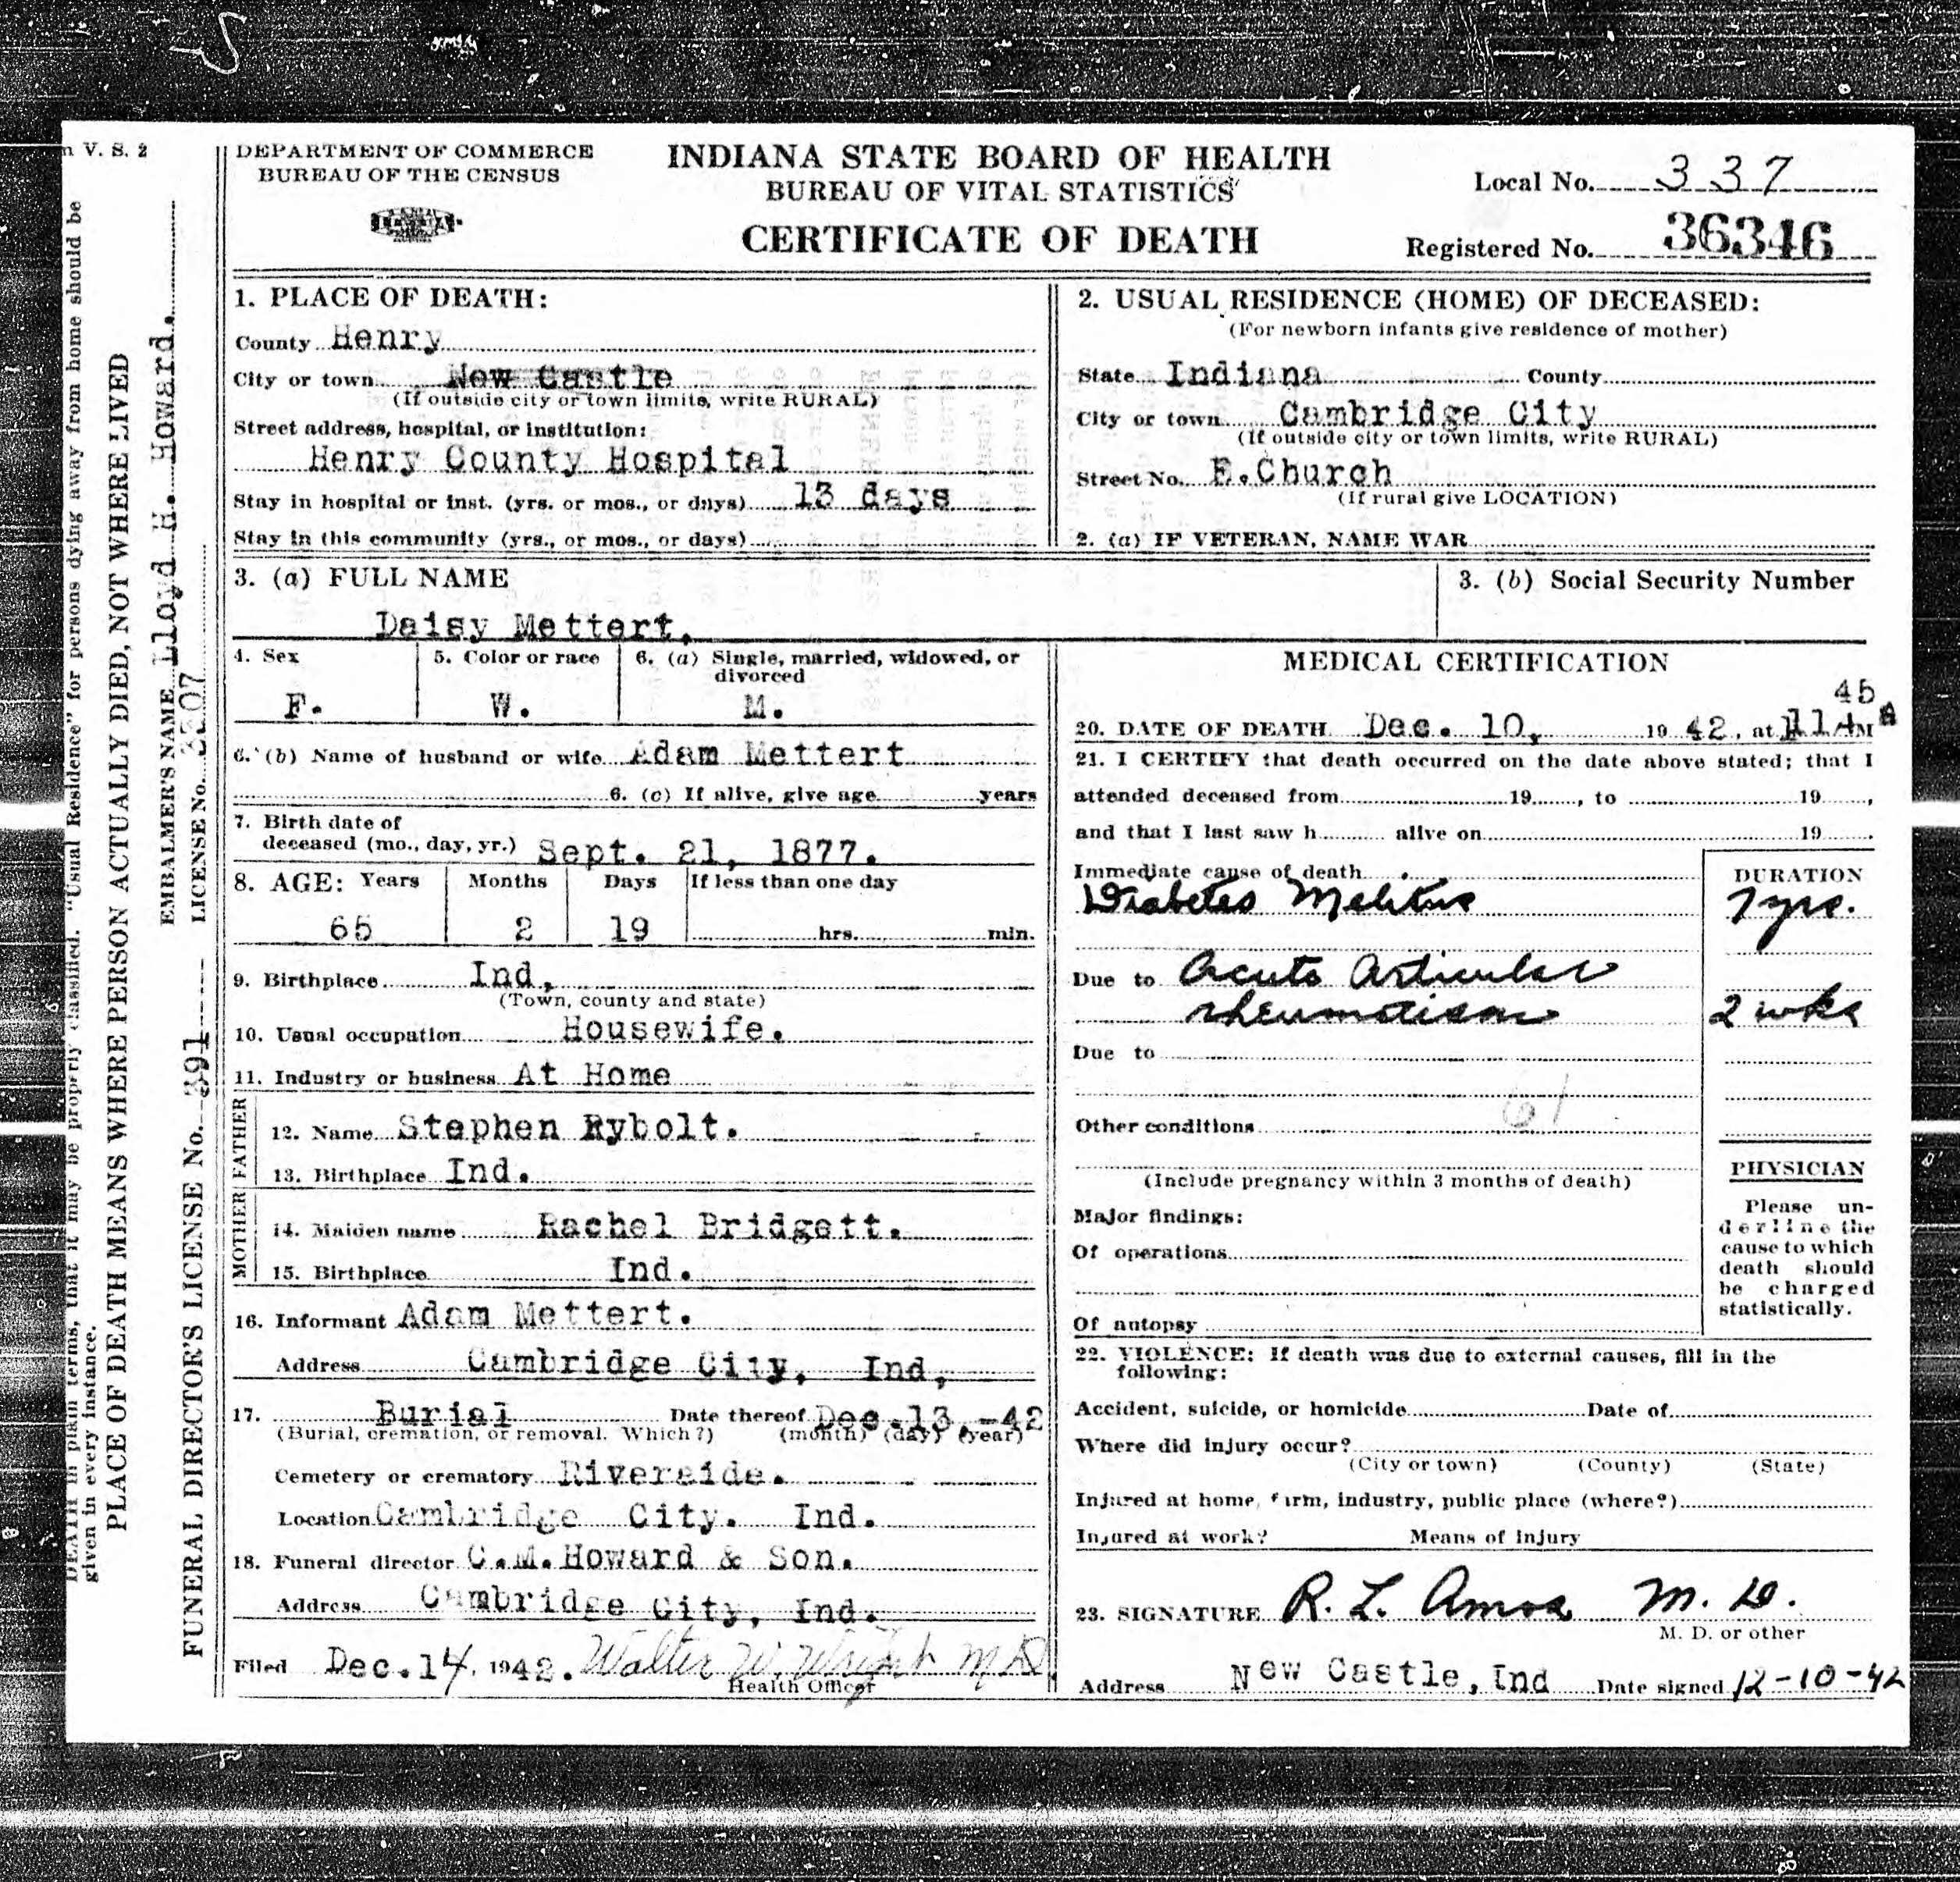 n V. S. 2
DEPARTMENT OF COMMERCE
BUREAU OF THE CENSUS
INDIANA STATE BOARD OF HEALTH
BUREAU OF VITAL STATISTICS
CERTIFICATE OF DEATH
Local No. 337
Registered No. 36346
1. PLACE OF DEATH:
County Henry
City or town New Castle
(If outside city or town limits, write RURAL)
Street address, hospital, or institution:
Henry County Hospital
Stay in hospital or inst. (yrs. or mos., or days) 13 days
Stay in this community (yrs., or mos., or days)
2. USUAL RESIDENCE (HOME) OF DECEASED:
(For newborn infants give residence of mother)
State Indiana County
City or town Cambridge City
(If outside city or town limits, write RURAL)
Street No. E.Church
(If rural give LOCATION)
2. (a) IF VETERAN, NAME WAR
3. (a) FULL NAME
Daisy Mettert.
3. (b) Social Security Number
4. Sex
F.
5. Color or race
W.
6. (a) Single, married, widowed, or divorced
M.
6. (b) Name of husband or wife Adam Mettert
6. (c) If alive, give age years
7. Birth date of
deceased (mo., day, yr.) Sept. 21, 1877.
8. AGE: Years Months Days If less than one day
65 2 19 hrs. min.
9. Birthplace Ind,
(Town, county and state)
10. Usual occupation Housewife.
11. Industry or business At Home
FATHER
12. Name Stephen Rybolt.
13. Birthplace Ind.
MOTHER
14. Maiden name Rachel Bridgett.
15. Birthplace Ind.
16. Informant Adam Mettert.
Address Cambridge City, Ind,
17. Burial Date thereof Dec.13,-42
(Burial, cremation, or removal. Which?) (month) (day) (year)
Cemetery or crematory Riverside.
Location Cambridge City. Ind.
18. Funeral director C.M.Howard & Son.
Address Cambridge City, Ind.
Filed Dec.14, 1942. Walter W. Wright MD
Health Officer
MEDICAL CERTIFICATION
45
20. DATE OF DEATH Dec. 10, 1942, at 11 A M
21. I CERTIFY that death occurred on the date above stated; that I
attended deceased from 19 , to 19 ,
and that I last saw h alive on 19 .
Immediate cause of death
DURATION
Diabetes Melitus 7 yrs.
Due to Acute Articular
rheumatism 2 wks
Due to
61
Other conditions
(Include pregnancy within 3 months of death)
Major findings:
Of operations
Of autopsy
PHYSICIAN
Please un-
derline the
cause to which
death should
be charged
statistically.
22. VIOLENCE: If death was due to external causes, fill in the
following:
Accident, suicide, or homicide Date of
Where did injury occur?
(City or town) (County) (State)
Injured at home, farm, industry, public place (where?)
Injured at work? Means of injury
23. SIGNATURE R. L. Amos M. D.
M. D. or other
Address New Castle, Ind Date signed 12-10-42
DEATH in plain terms, that it may be properly classified. "Usual Residence" for persons dying away from home should be
given in every instance.
PLACE OF DEATH MEANS WHERE PERSON ACTUALLY DIED, NOT WHERE LIVED
EMBALMER'S NAME Lloyd H. Howard.
FUNERAL DIRECTOR'S LICENSE No. 391 LICENSE No. 3307